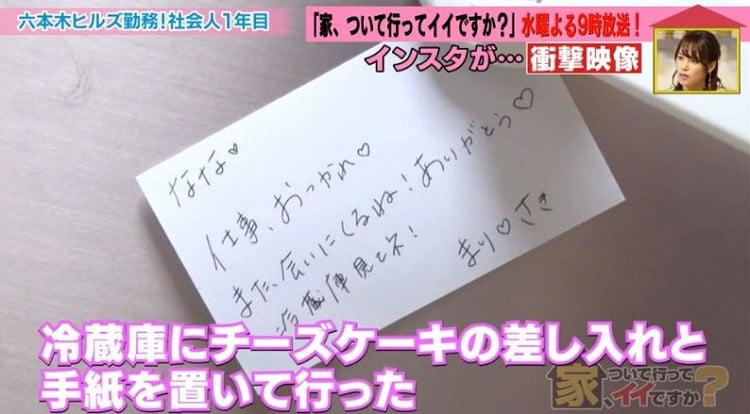 六本木ヒルズ勤務!社会人1年目
「家、ついて行ってイイですか?」水曜よる9時放送!
インスタが…衝撃映像
なな♡
仕事、おつかれ♡
また、会いにくるね!ありがとう♡
冷蔵庫見てネ!
まり♡さき
冷蔵庫にチーズケーキの差し入れと
手紙を置いて行った
家、ついて行って
イイですか?